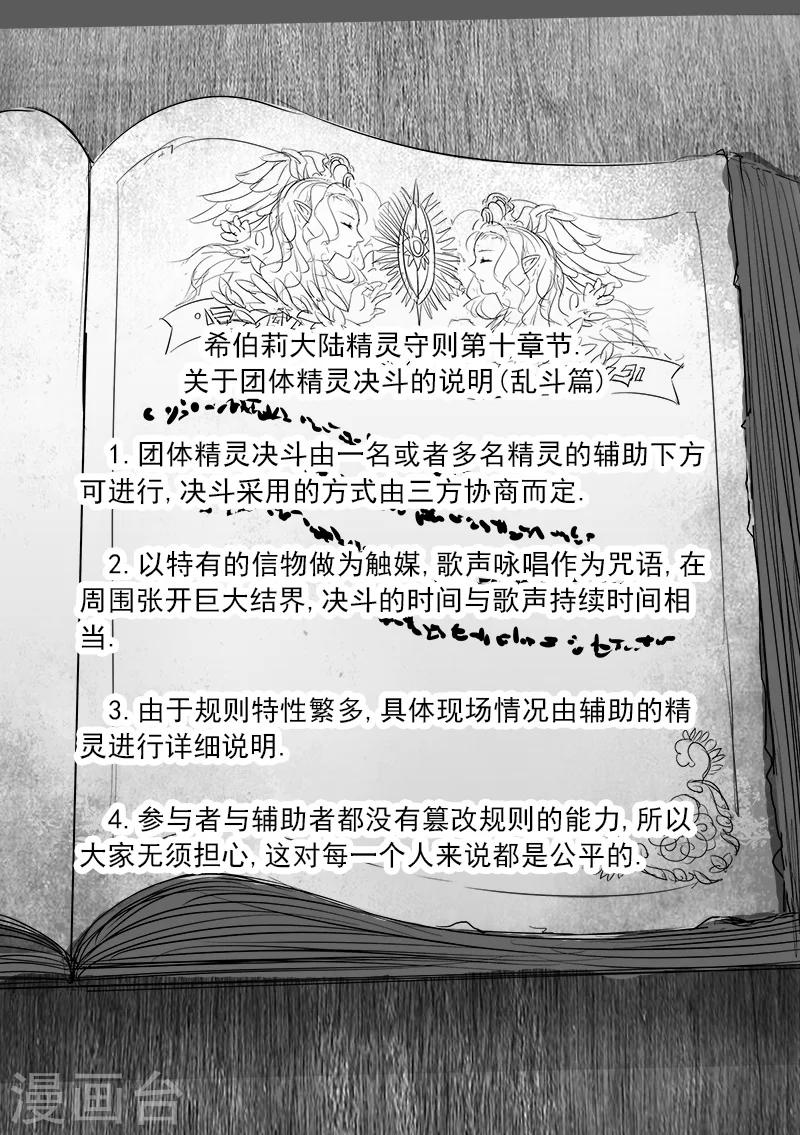 希伯莉大陆精灵守则第十章节.
关于团体精灵决斗的说明(乱斗篇)
1.团体精灵决斗由一名或者多名精灵的辅助下方
可进行,决斗采用的方式由三方协商而定.
2.以特有的信物做为触媒,歌声咏唱作为咒语,在
周围张开巨大结界,决斗的时间与歌声持续时间相
当.
3.由于规则特性繁多,具体现场情况由辅助的精
灵进行详细说明.
4.参与者与辅助者都没有篡改规则的能力,所以
大家无须担心,这对每一个人来说都是公平的.
漫画台